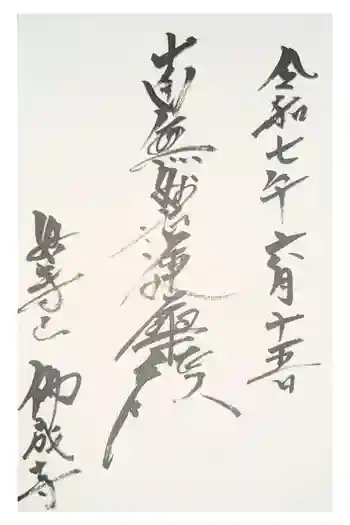 令和七年六月十五日
南無妙法蓮華経
山
佛成寺